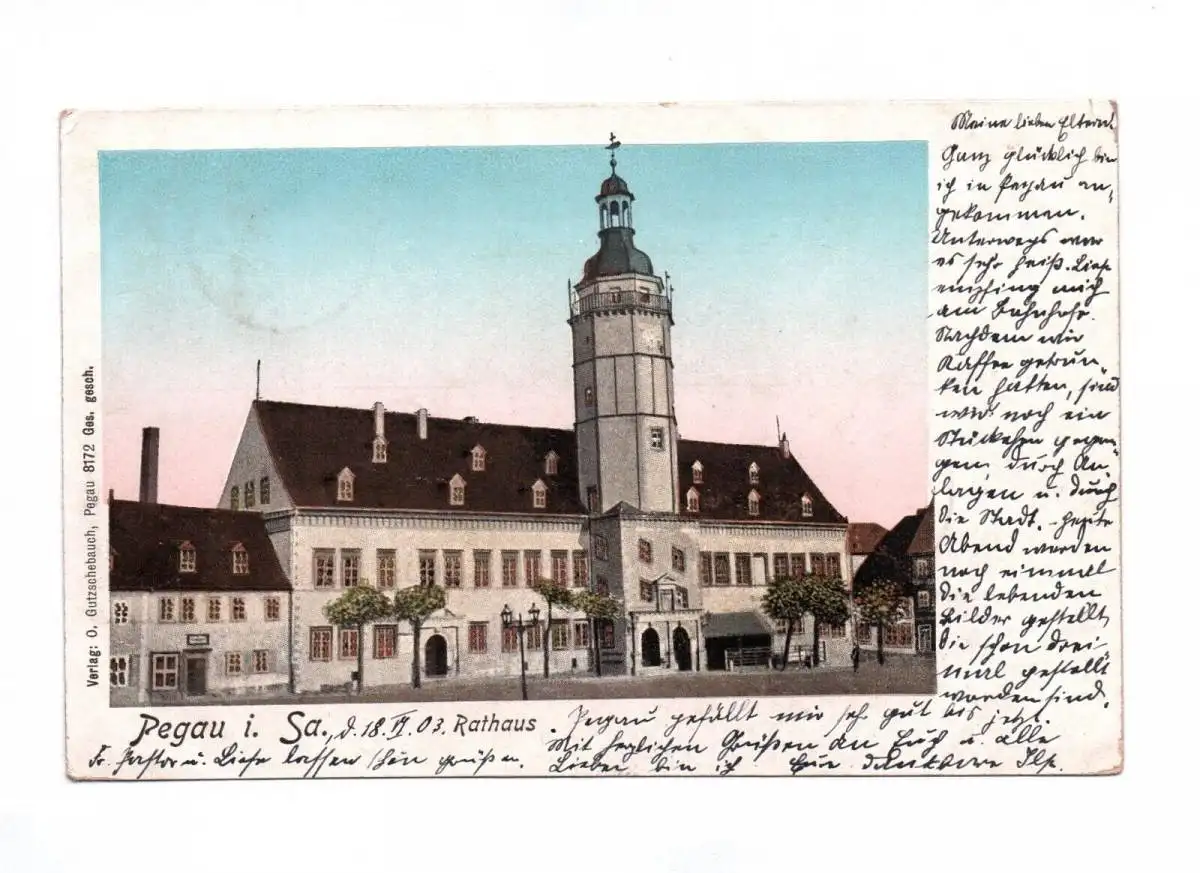 Meine lieben Eltern!
Ganz glücklich bin
ich in Pegau an-
gekommen.
Unterwegs war
es sehr heiß. Liese
empfing mich
am Bahnhofe.
Nachdem wir
Kaffee getrun-
ken hatten, sind
wir noch ein
Stückchen gegan-
gen durch An-
lagen u. durch
die Stadt. - Heute
Abend werden
noch einmal
die lebenden
Bilder gestellt,
die schon drei-
mal gestellt
worden sind.
Verlag: O. Gutzschebauch, Pegau 8172 Ges. gesch.
Pegau i. Sa., d. 18. VI. 03. Rathaus
Pegau gefällt mir sehr gut bis jetzt.
Mit herzlichen Grüßen an Euch u. alle
Lieben bin ich Eure dankbare Ilse.
Fr. Pastor u. Liese lassen schön grüßen.